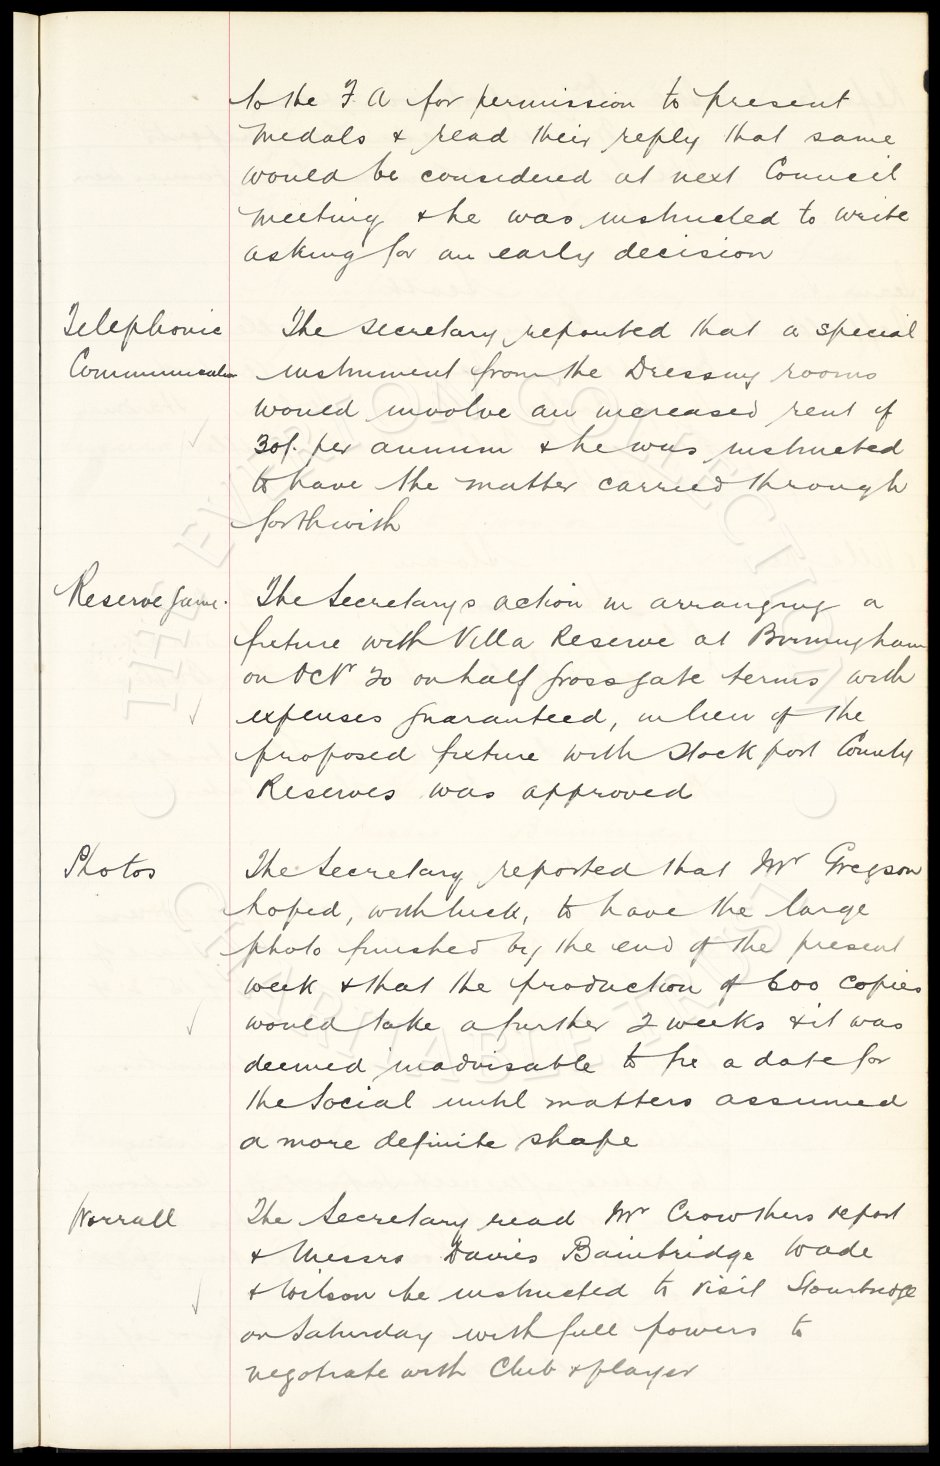 to the F. A for permission to present
medals & read their reply that same
would be considered at next Council
meeting & he was instructed to write
asking for an early decision
Telephonic
Communication
The Secretary reported that a special
instrument from the Dressing rooms
would involve an increased rent of
30/. per annum & he was instructed
to have the matter carried through
forthwith
Reserve game.
The Secretarys action in arranging a
fixture with Villa Reserve at Birmingham
on Octr 20 on half gross gate terms with
expenses guaranteed, in lieu of the
proposed fixture with Stockport County
Reserves was approved
Photos
The Secretary reported that Mr Gregson
hoped, with luck, to have the large
photo finished by the end of the present
week & that the production of 600 copies
would take a further 2 weeks & it was
deemed inadvisable to fix a date for
the Social until matters assumed
a more definite shape
Worrall
The Secretary read Mr Crowthers report
& Messrs Davies Bainbridge Wade
& Wilson be instructed to visit Stourbridge
on Saturday with full powers to
negotiate with Club & player
THE EVERTON COLLECTION
CHARITABLE TRUST